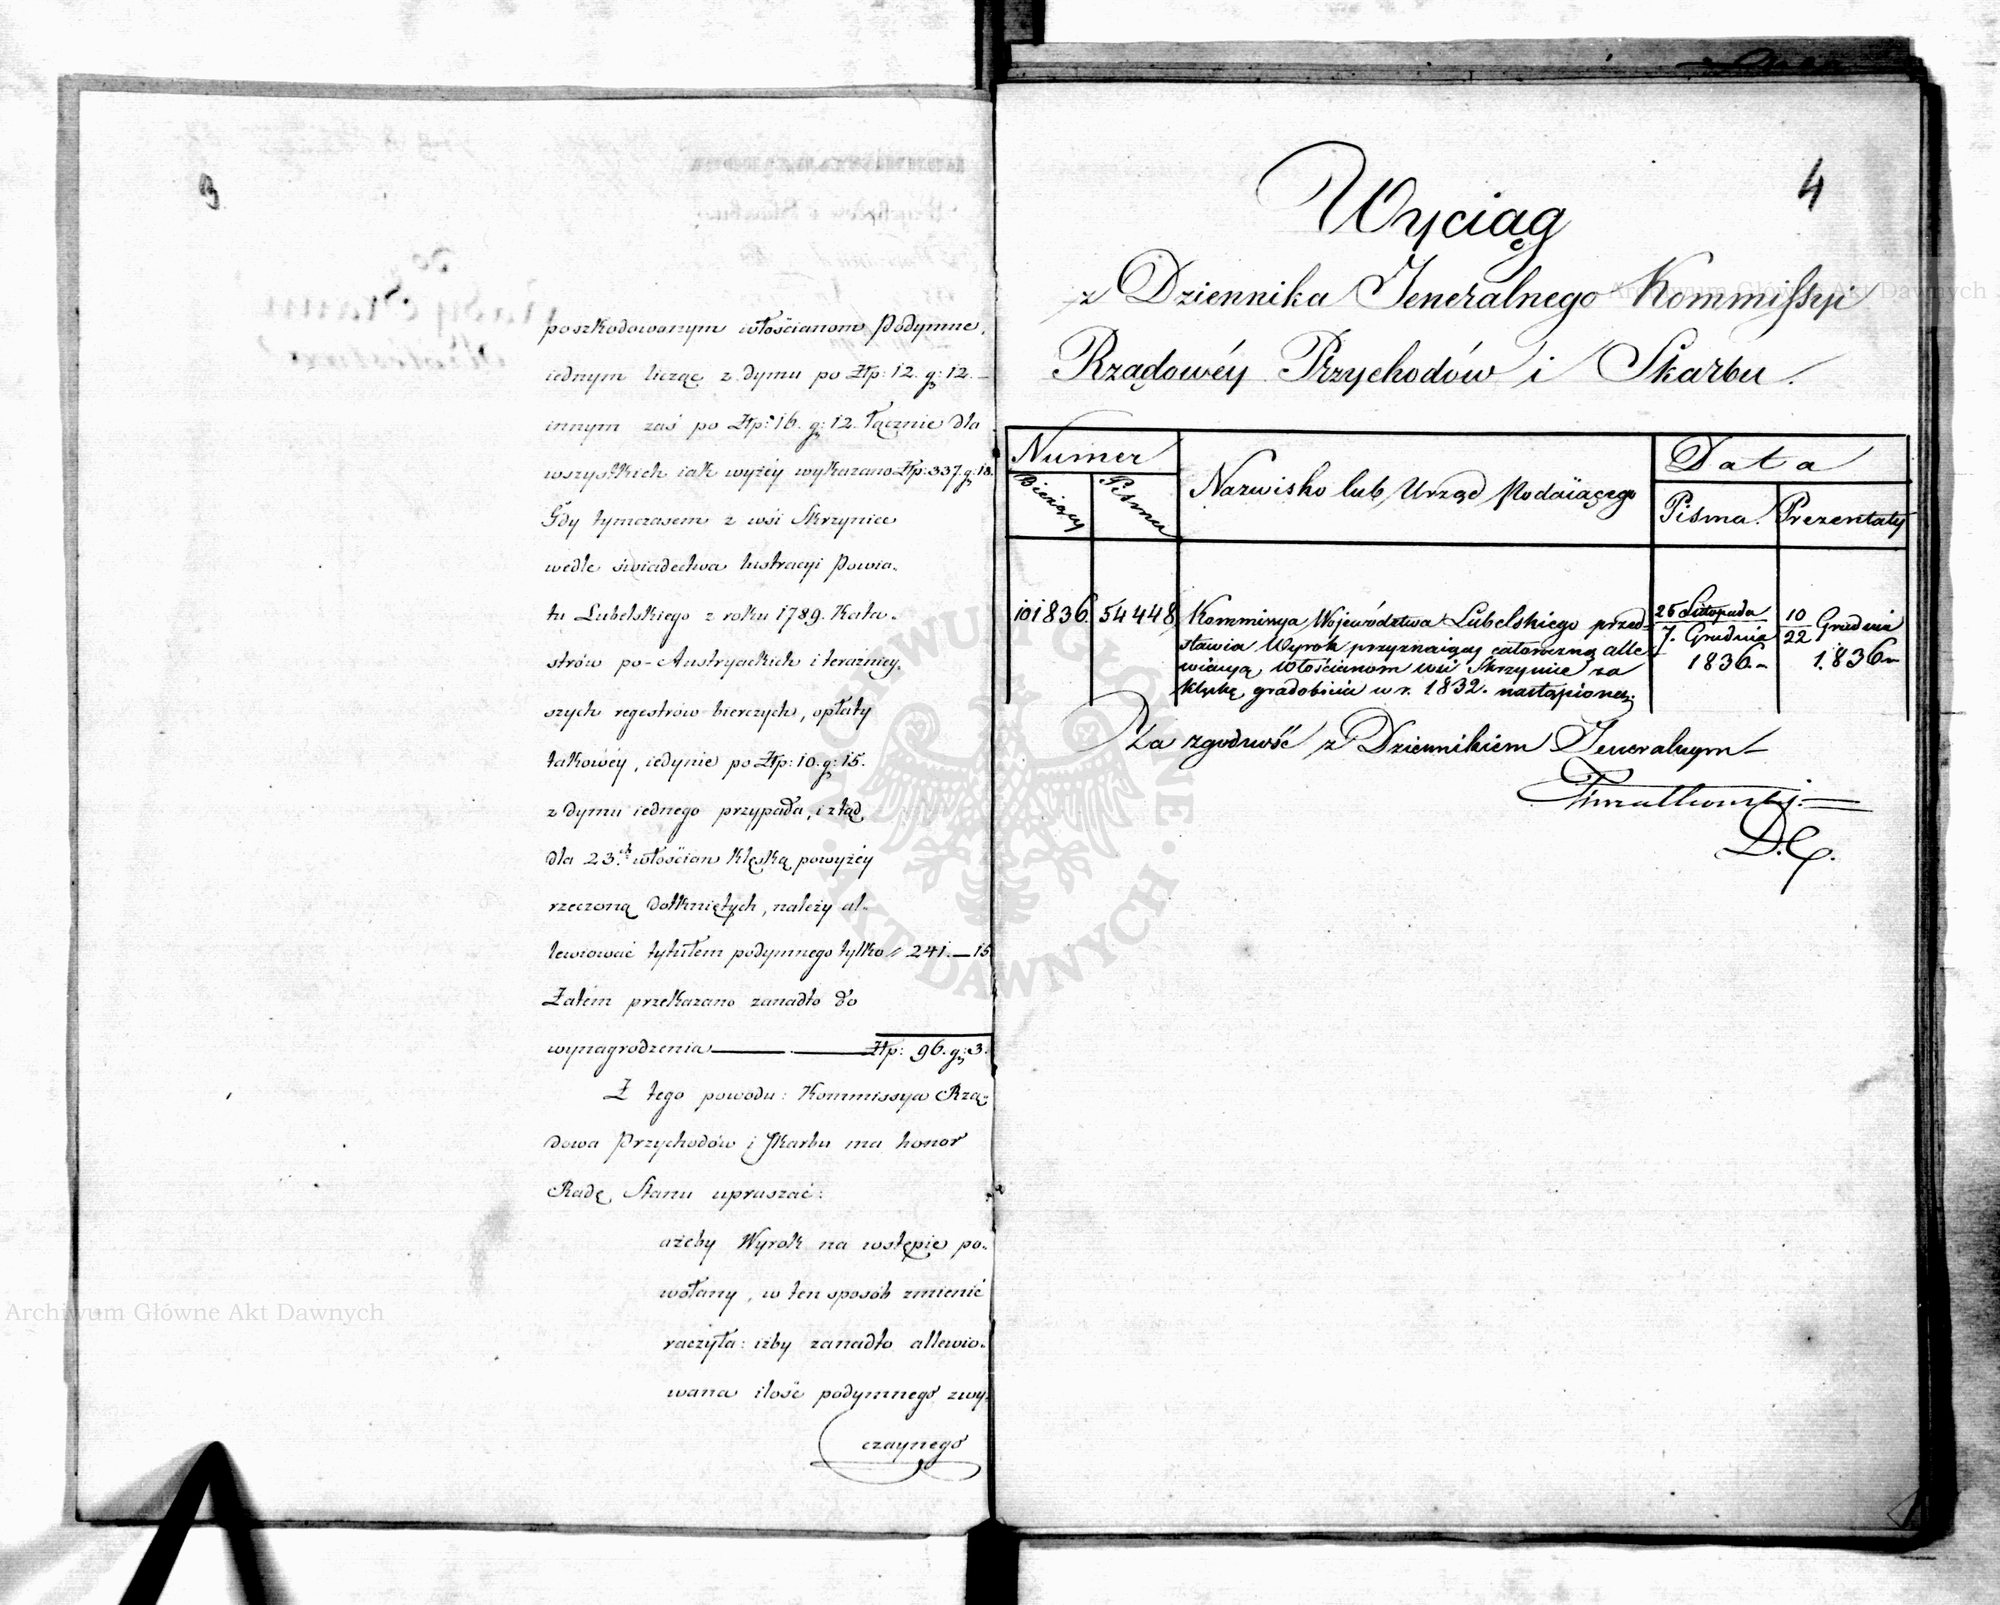 poszkodowanym włościanom Podymne,
iednym licząc z dymu po Złp: 12. g: 12. –
innym zaś po Złp: 16. g: 12. łącznie dla
wszystkich iak wyżéy wykazano Złp: 337. g: 18.
Gdy tymczasem z wsi Skrzynice
wedle świadectwa lustracyi Powia-
tu Lubelskiego z roku 1789. Kata-
strów po-Austryackich i teraźniey-
szych regestrów bierczych, opłaty
takowéy, iedynie po Złp: 10. g: 15.
z dymu iednego przypada, i ztąd
dla 23.ch włościan klęską powyżéy
rzeczoną dotkniętych, należy al-
lewiować tytułem podymnego tylko „ 241. — 15.
Zatém przekazano zanadto do
wynagrodzenia — Złp: 96. g: 3.
Z tego powodu: Kommissya Rzą-
dowa Przychodów i Skarbu ma honor
Radę Stanu upraszać:
ażeby Wyrok na wstępie po-
wołany, w ten sposób zmienić
raczyła: iżby zanadto allewio-
wana ilość podymnego zwy-
czaynego
4
Wyciąg
z Dziennika Jeneralnego Kommissyi
Rządowéy Przychodów i Skarbu.
Numer
Bieżący
Pisma
Nazwisko lub Urząd Podaiącego
Data
Pisma.
Prezentaty
101836. 54448
Kommissya Województwa Lubelskiego przed-
stawia Wyrok przyznaiący całoroczną alle-
wiacyą Włościanom wsi Skrzynice za
klęskę gradobicia w r. 1832. nastąpioną.
25 Listopada
7. Grudnia
1836
10
22
Grudnia
1836
Za zgodność z Dziennikiem Jeneralnym
D.G.
Archiwum Główne Akt Dawnych
Archiwum Główne Akt Dawnych
ARCHIWUM GŁÓWNE
AKT DAWNYCH